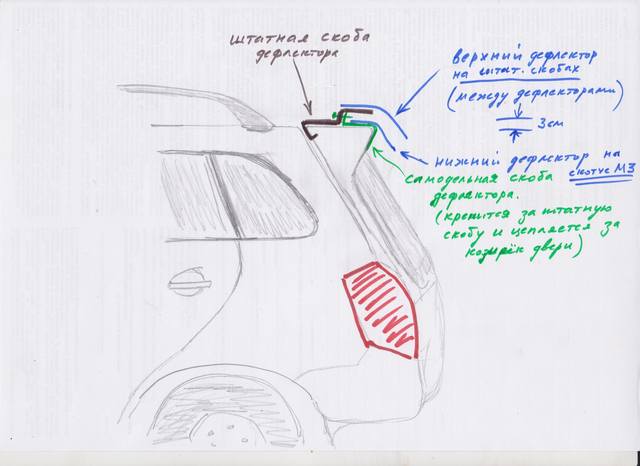 штатная скоба
дефлектора
верхний дефлектор
на штат. скобах
(между дефлекторами)
3см
нижний дефлектор на
скотче МЗ
самодельная скоба
дефлектора.
(крепится за штатную
скобу и цепляется за
козырёк двери)